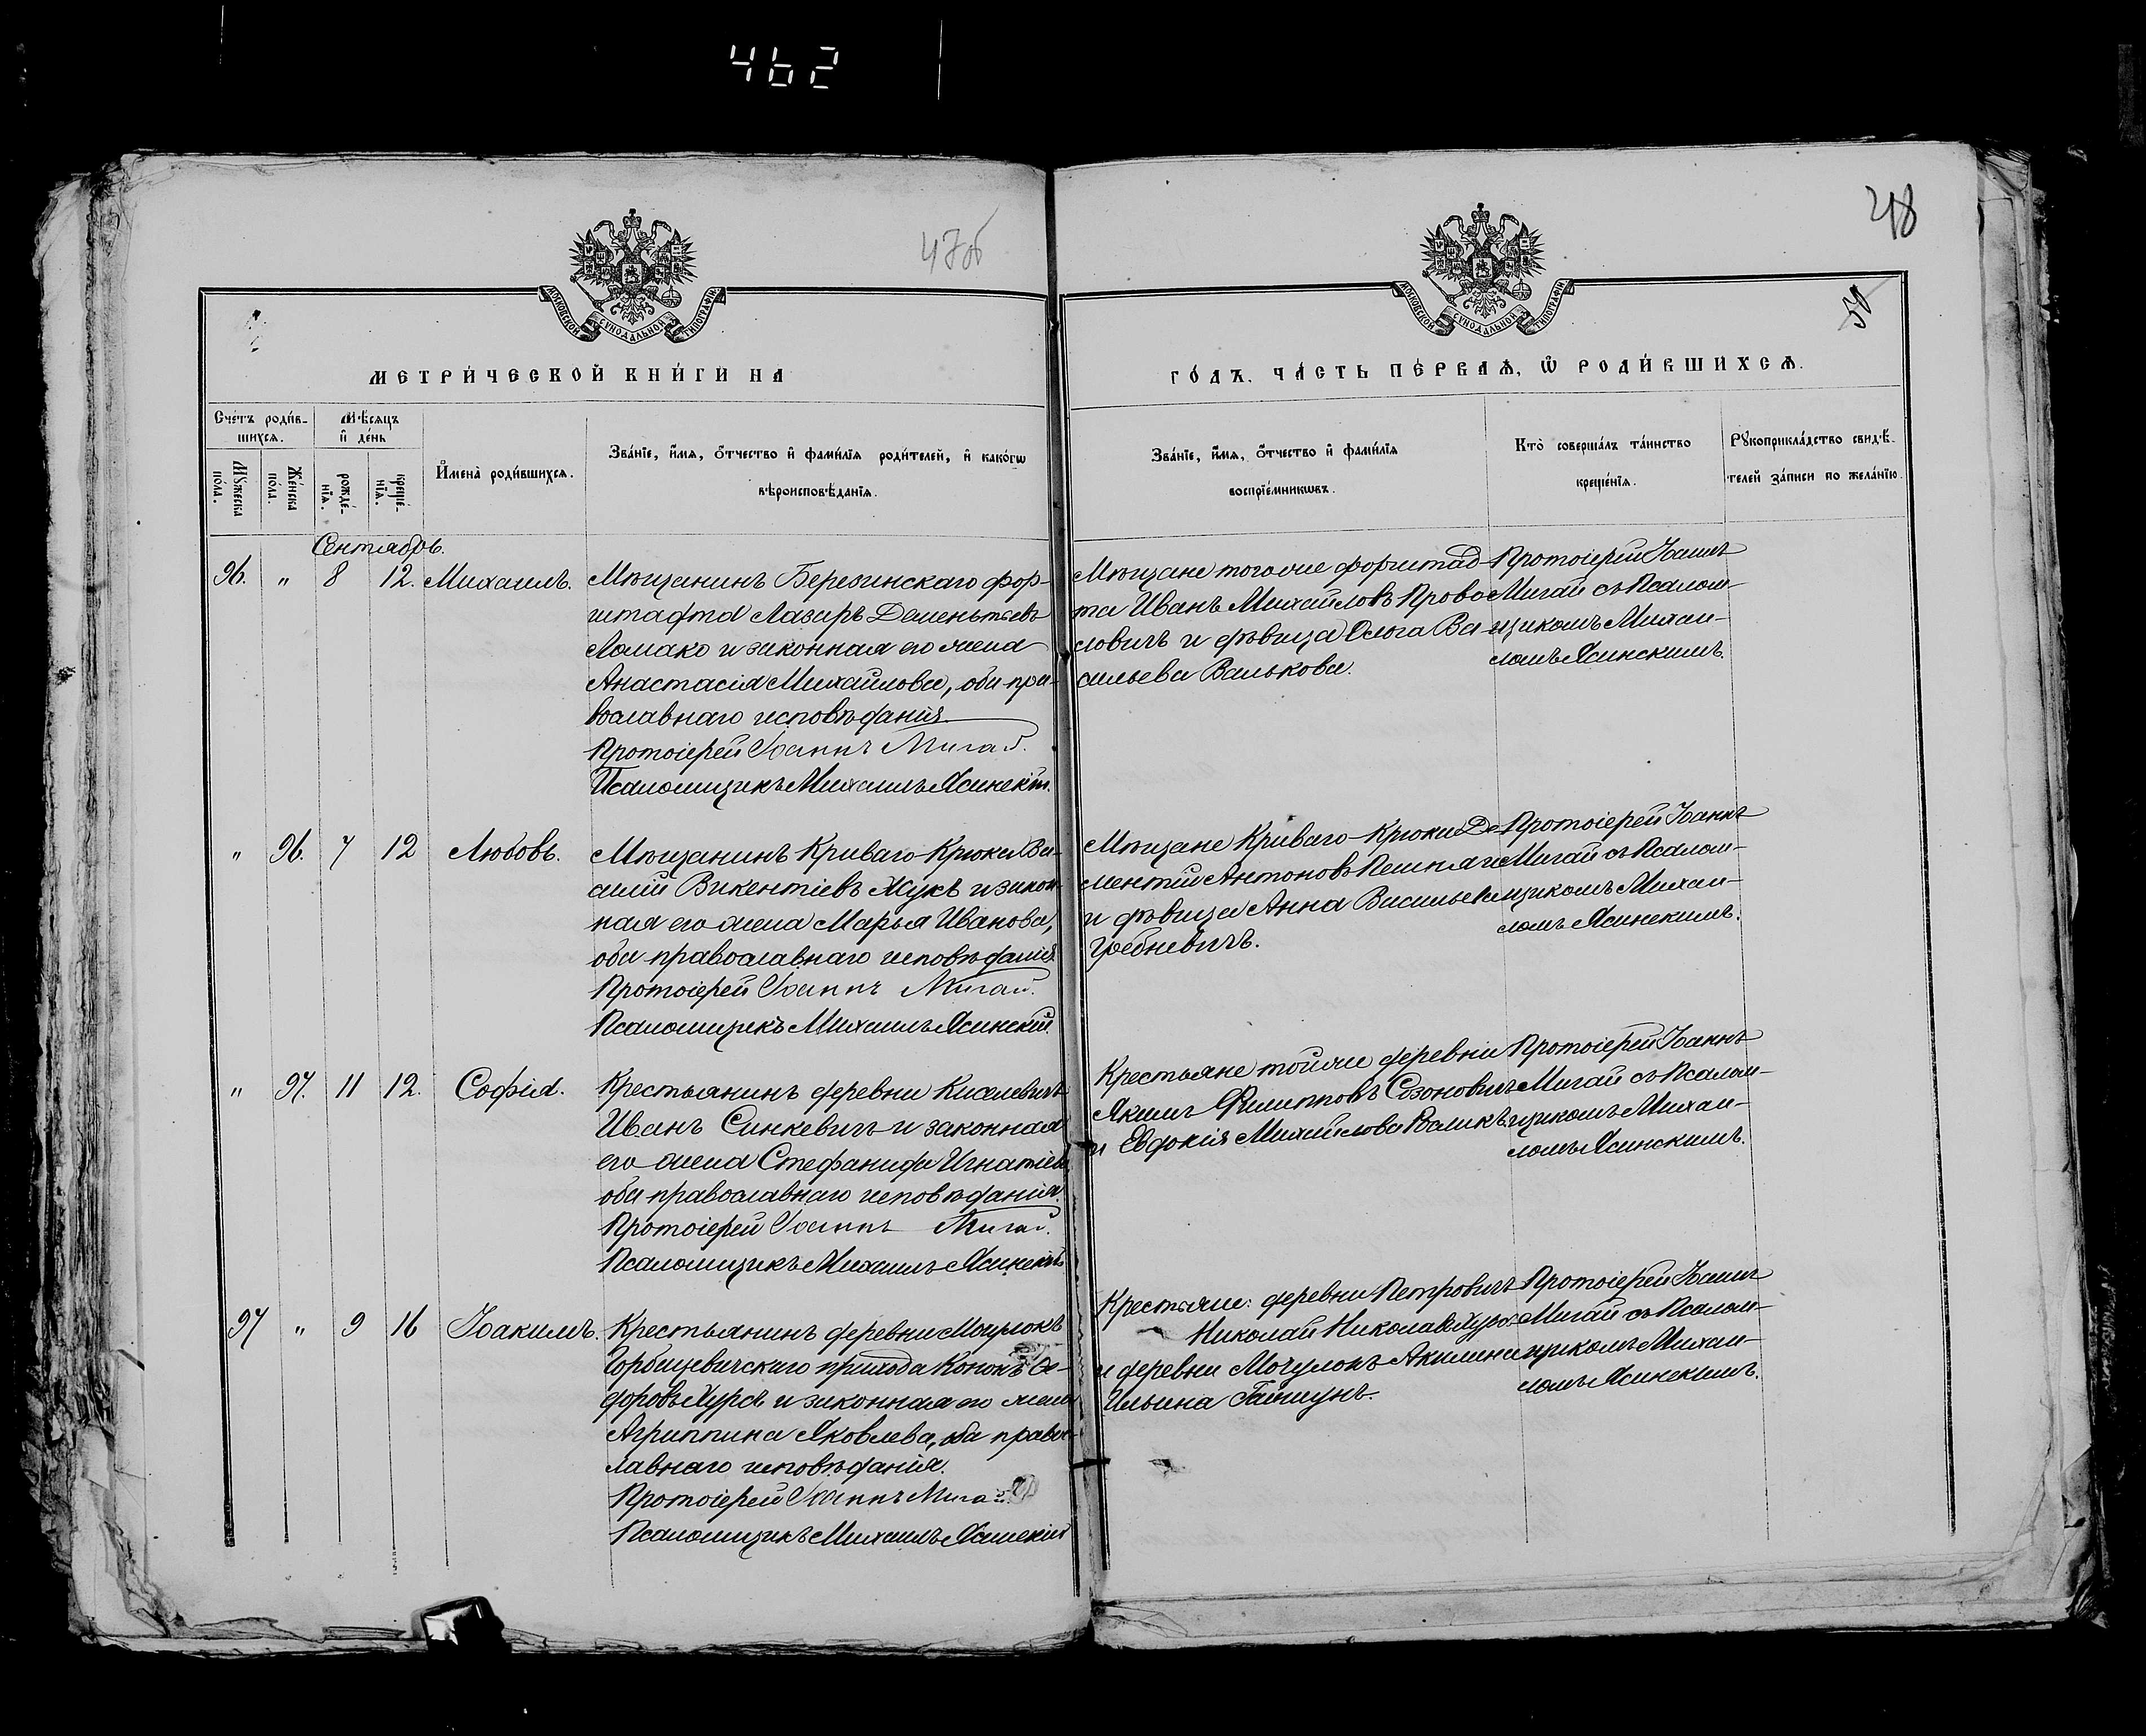 462
47об
48
50
МОСКОВСКОЙ СѴНОДАЛЬНОЙ ТИПОГРАФІИ
МОСКОВСКОЙ СѴНОДАЛЬНОЙ ТИПОГРАФІИ
МЕТРИ́ЧЕСКОЙ КНИ́ГИ НА
ГО́ДЪ. ЧА́СТЬ ПЕ́РВАѦ, Ѽ РОДИ́ВШИХСѦ.
Сче́тъ роди́в-
шихсѧ.
Мꙋжеска по́ла.
Же́нска по́ла.
Мѣ́сяцъ
и҆ де́нь
рожде́-
нїѧ.
креще́-
нїѧ.
И҆мена̀ роди́вшихсѧ.
Зва́нїе, и҆́мѧ, ѻ҆́тчество и҆ фами́лїѧ роди́телей, и҆ како́гѡ
вѣроисповѣ́данїѧ.
Зва́нїе, и҆́мѧ, ѻ҆́тчество и҆ фами́лїѧ
воспрїе́мникѡвъ.
Кто̀ соверша́лъ та́инство
креще́нїѧ.
Рꙋкоприкла́дство свидѣ́-
телей за́писи по жела́нїю.
Сентябрь.
96. " 8 12. Михаилъ.
Мѣщанинъ Березинскаго фор-
штафта Лазарь Деменьтьевъ
Ломако и законная его жена
Анастасія Михайлова, оба пра-
вославнаго исповѣданія.
Протоіерей Іоаннъ Мигай.
Псаломщикъ Михаилъ Ясинскій.
Мѣщане тогоже форштад-
та Иванъ Михайловъ Прово-
ловичъ и дѣвица Ольга Ва-
сильева Валькова.
Протоіерей Іоаннъ
Мигай съ Псалом-
щикомъ Михаи-
ломъ Ясинскимъ.
" 96. 7 12 Любовь.
Мѣщанинъ Криваго-Крюка Ва-
силій Викентіевъ Жукъ и закон-
ная его жена Марья Иванова,
оба православнаго исповѣданія
Протоіерей Іоаннъ Мигай.
Псаломщикъ Михаилъ Ясинскій.
Мѣщане Криваго-Крюка Де-
ментій Антоновъ
и дѣвица Анна Васильева
Гребневичъ.
Протоіерей Іоаннъ
Мигай съ Псалом-
щикомъ Михаи-
ломъ Ясинскимъ.
" 97. 11 12. Софія.
Крестьянинъ деревни Киселевичъ
Иванъ Синкевичъ и законная
его жена Стефанида Игнатіева
оба православнаго исповѣданія.
Протоіерей Іоаннъ Мигай.
Псаломщикъ Михаилъ Ясинскій.
Крестьяне тойже деревни
Якимъ Филипповъ Созоновичъ
и Евдокія Михайлова Валикъ.
Протоіерей Іоаннъ
Мигай съ Псалом-
щикомъ Михаи-
ломъ Ясинскимъ.
97 " 9 16 Іоакимъ.
Крестьянинъ деревни Мочулокъ
Горбацевичскаго прихода Кононъ Ѳе-
доровъ Хурсъ и законная его жена
Агриппина Яковлева, оба право-
лавнаго исповѣданія.
Протоіерей Іоаннъ Мигай
Псаломщикъ Михаилъ Ясинскій
Крестьяне: деревни Петровичъ
Николай Николаевъ Хурсъ
и деревни Мочулокъ Акилина
Ильина Гайшунъ.
Протоіерей Іоаннъ
Мигай съ Псалом-
щикомъ Михаи-
ломъ Ясинскимъ.